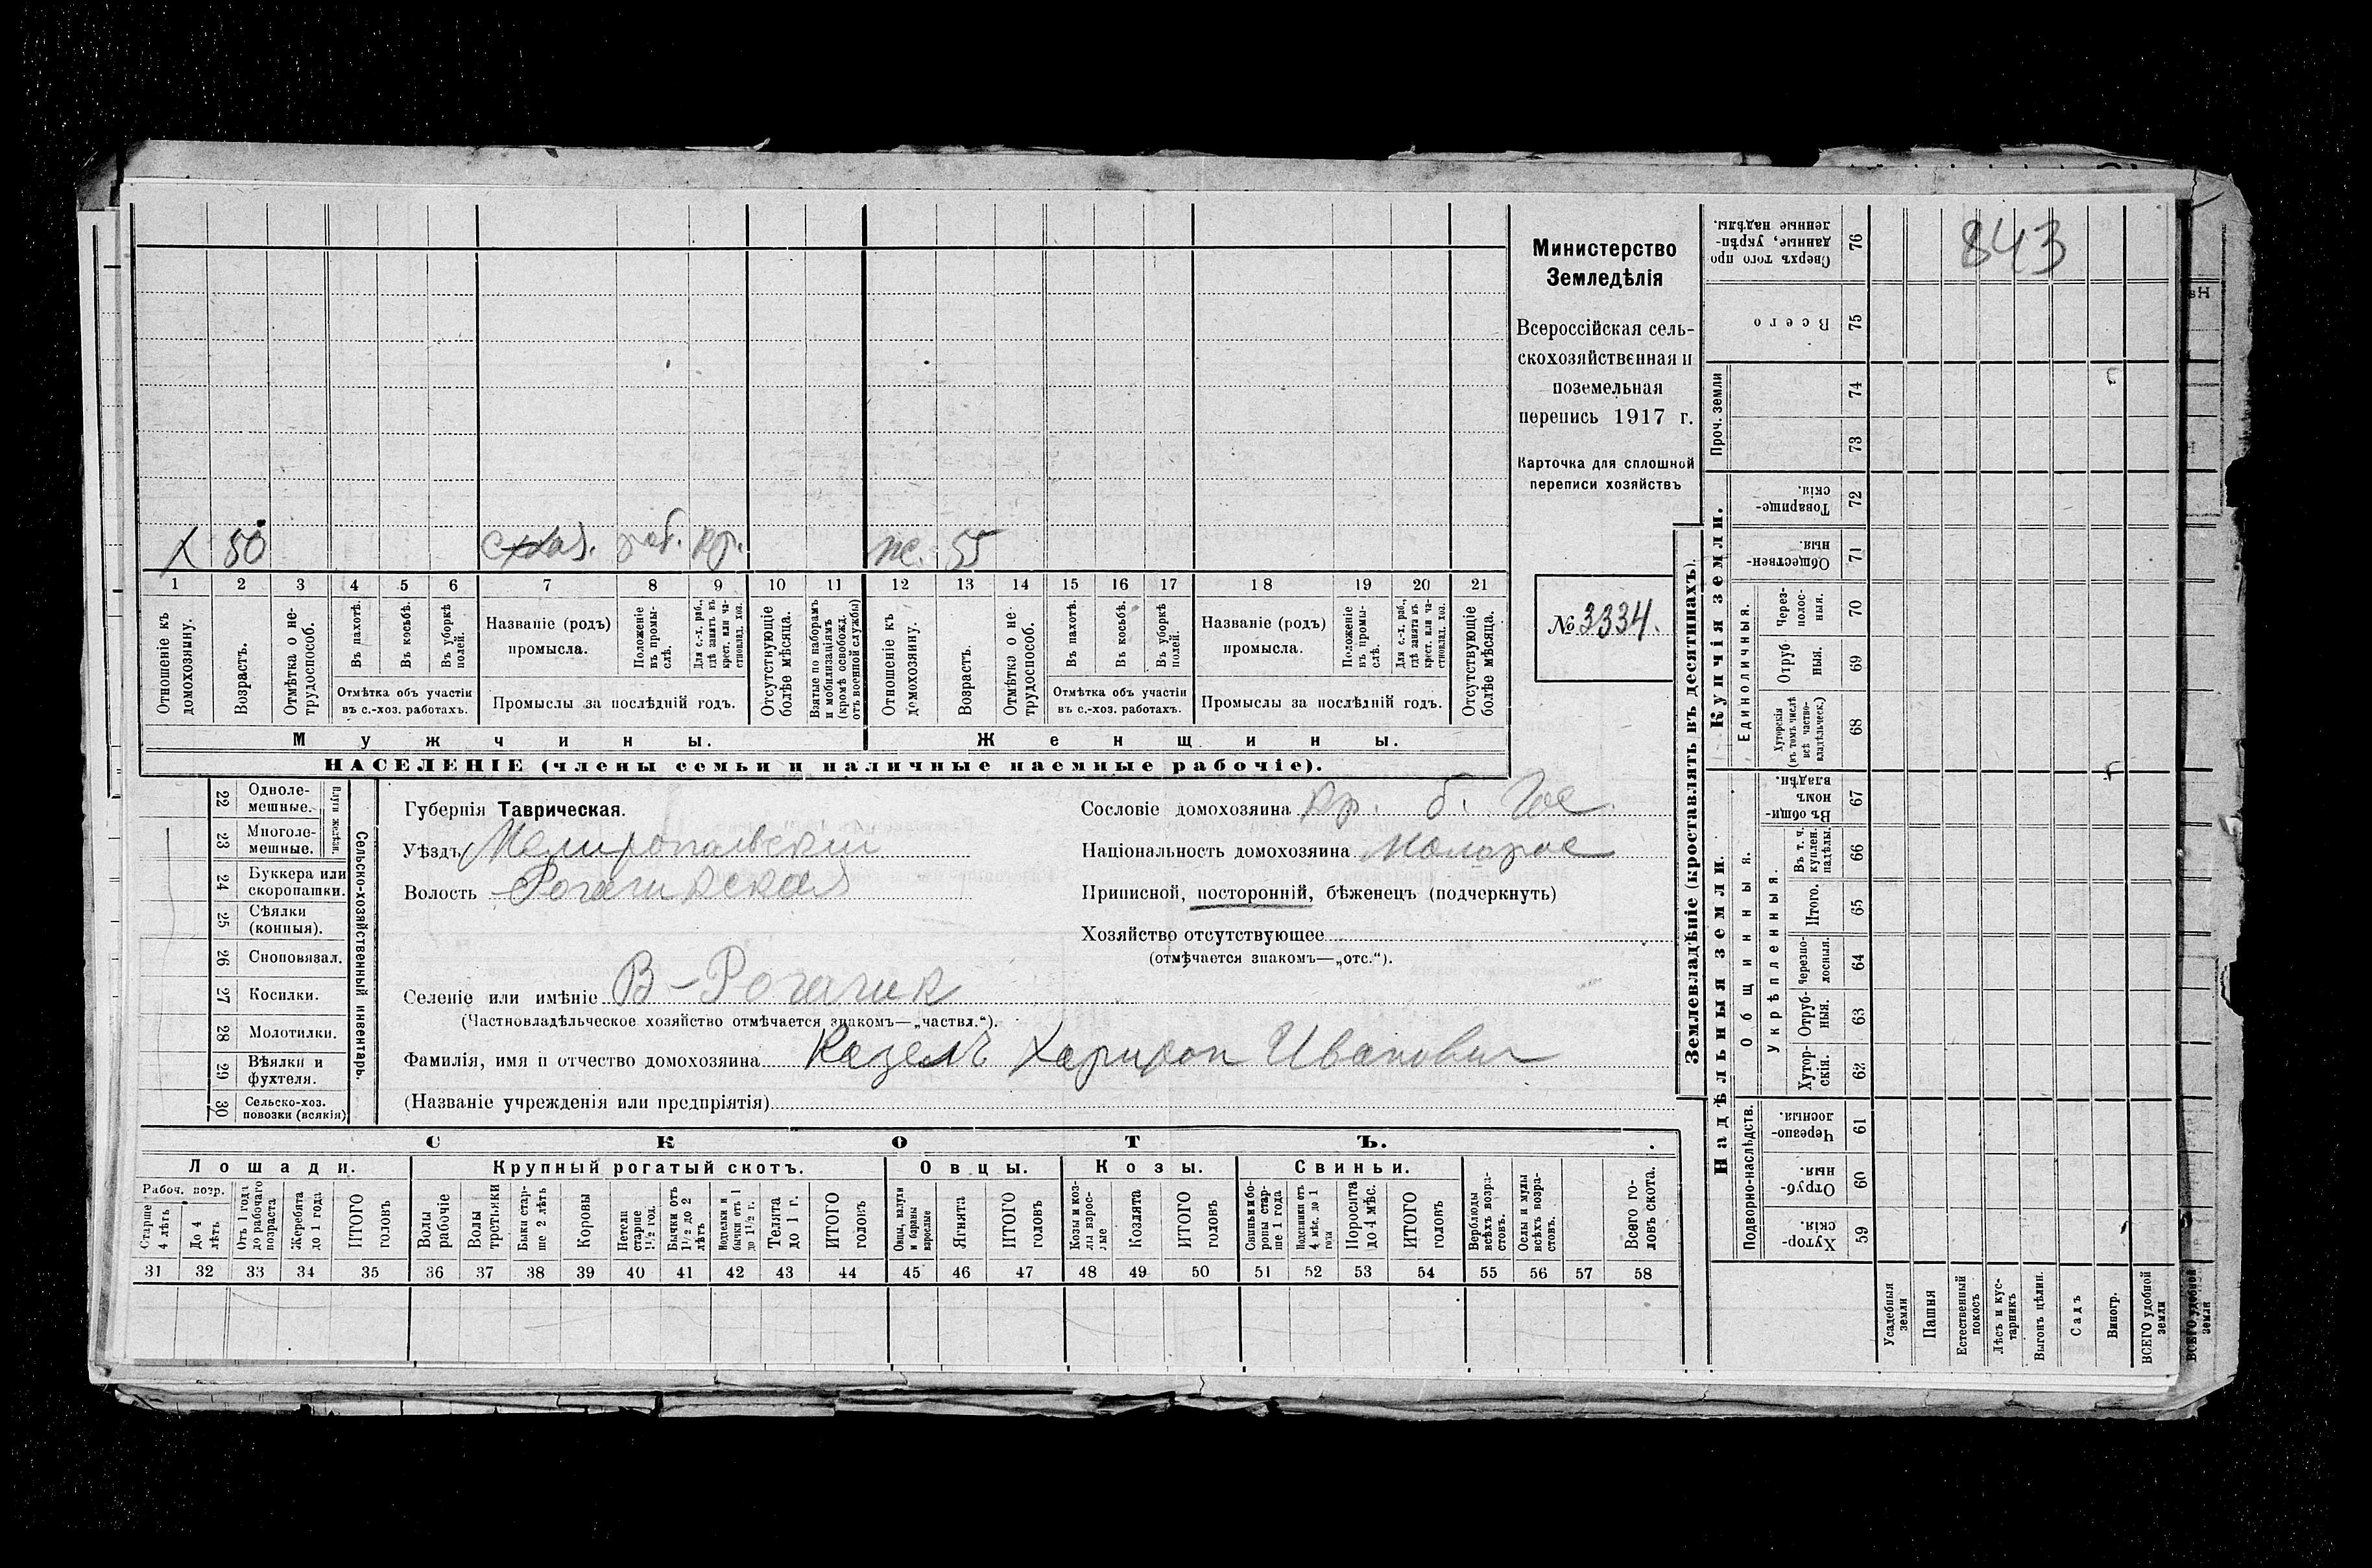 843
Министерство
Земледѣлія
Всероссійская сель-
скохозяйственная и
поземельная
перепись 1917 г.
Карточка для сплошной
переписи хозяйствъ
№ 3334.
Х 50 раб. кр. ж. 55
1 2 3 4 5 6 7 8 9 10 11 12 13 14 15 16 17 18 19 20 21
Отношеніе къ домохозяину.
Возрастъ.
Отмѣтка о не-трудоспособ.
Въ пахотѣ.
Въ косьбѣ.
Въ уборкѣ полей.
Отмѣтка объ участіи
въ с.-хоз. работахъ.
Названіе (родъ)
промысла.
Положеніе въ промы-слѣ.
Для с.-х. раб., гдѣ занятъ въ крест. или ча-стновлад. хоз.
Промыслы за послѣдній годъ.
Отсутствующіе болѣе мѣсяца.
Взятые по наборамъ и мобилизаціямъ (кромѣ освобожд. отъ военной службы)
Отношеніе къ домохозяину.
Возрастъ.
Отмѣтка о не-трудоспособ.
Въ пахотѣ.
Въ косьбѣ.
Въ уборкѣ полей.
Отмѣтка объ участіи
въ с.-хоз. работахъ.
Названіе (родъ)
промысла.
Положеніе въ промы-слѣ.
Для с.-х. раб., гдѣ занятъ въ крест. или ча-стновлад. хоз.
Промыслы за послѣдній годъ.
Отсутствующіе болѣе мѣсяца.
Мужчины. Женщины.
НАСЕЛЕНІЕ (члены семьи и наличные наемные рабочіе).
Сельско-хозяйственный инвентарь.
Плуги желѣзн.
22 Одноле-мешные.
23 Многоле-мешные.
24 Буккера или скоропашки.
25 Сѣялки (конныя).
26 Сноповязал.
27 Косилки.
28 Молотилки.
29 Вѣялки и фухтеля.
30 Сельско-хоз. повозки (всякія)
Губернія Таврическая.
Уѣздъ Мелитопольскій
Волость Рогачикская
Селеніе или имѣніе В-Рогачик
(Частновладѣльческое хозяйство отмѣчается знакомъ—„частвл.“).
Фамилія, имя и отчество домохозяина Козелъ Харитон Иванович
(Названіе учрежденія или предпріятія)
Сословіе домохозяина кр.
Національность домохозяина малорос
Приписной, посторонній, бѣженецъ (подчеркнуть)
Хозяйство отсутствующее
(отмѣчается знакомъ—„отс.“).
СКОТЪ.
Лошади. Крупный рогатый скотъ. Овцы. Козы. Свиньи.
Рабоч. возр.
Старше 4 лѣтъ
До 4 лѣтъ
Отъ 1 года до рабочаго возраста
Жеребята до 1 года
ИТОГО головъ
Волы рабочіе
Волы третьяки
Быки стар-ше 2 лѣтъ
Коровы
Нетели старше 1½ год.
Бычки отъ 1½ до 2 лѣтъ
Подтелки и бычки отъ 1 до 1½ г.
Телята до 1 г.
ИТОГО головъ
Овцы, валухи и бараны взрослые
Ягнята
ИТОГО головъ
Козы и коз-лы взрос-лые
Козлята
ИТОГО головъ
Свиньи и бо-ровы стар-ше 1 года
Подсвинки отъ 4 мѣс. до 1 года
Поросята до 4 мѣс.
ИТОГО головъ
Верблюды всѣхъ возра-стовъ.
Ослы и мулы всѣхъ возра-стовъ.
Всего го-ловъ скота.
31 32 33 34 35 36 37 38 39 40 41 42 43 44 45 46 47 48 49 50 51 52 53 54 55 56 57 58
Землевладѣніе (проставлять въ десятинахъ).
Купчія земли.
Надѣльныя земли.
Сверхъ того про данные, укрѣп-ленные надѣлы. 76
Всего 75
Проч. земли
74
73
Товарище-скія. 72
Обществен-ныя 71
Единоличныя.
Через-полос-ныя. 70
Отруб-ныя. 69
Хуторскія (въ томъ числѣ всѣ частно-владѣльческ.) 68
Общинныя.
Въ общи-номъ владѣн. 67
Укрѣпленныя.
Въ т. ч. куплен. надѣлы. 66
Итого. 65
Черезпо-лосныя. 64
Отруб-ныя. 63
Хутор-скія. 62
Подворно-наслѣдств.
Черезпо-лосныя. 61
Отруб-ныя. 60
Хутор-скія. 59
Усадебныя земли
Пашня
Естественный покосъ
Лѣсъ и кус-тарникъ
Выгонъ цѣлин.
Садъ
Виногр.
ВСЕГО удобной земли
ВСЕГО удобной земли